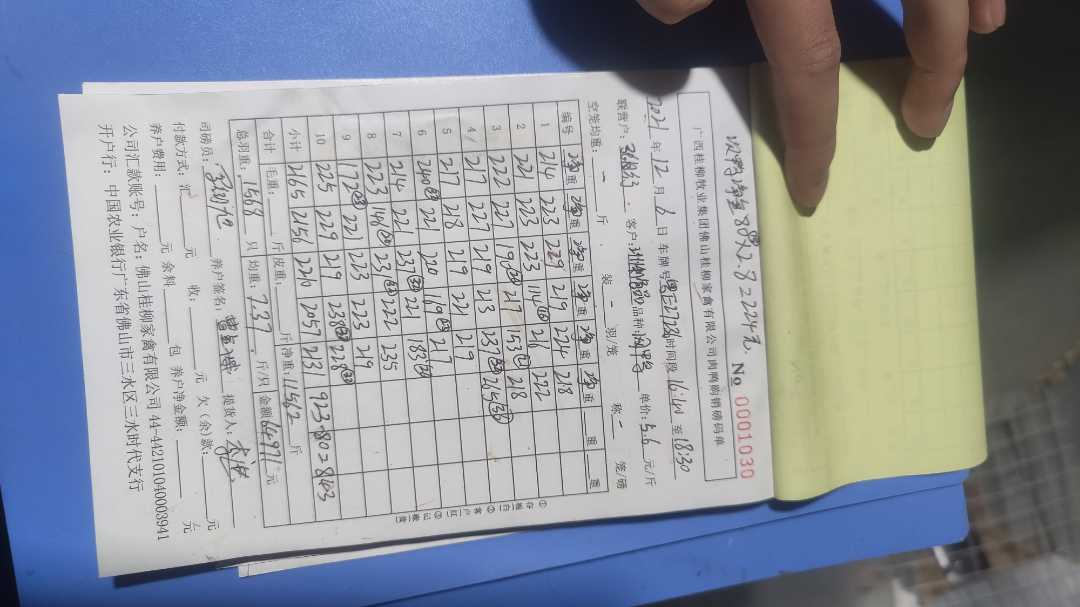 次鸭净重80×2.8=224元.
No 0001030
广西桂柳牧业集团佛山桂柳家禽有限公司肉鸭购销磅码单
2021年12月6日 车牌号 时间段16:40至18:30
联营户: 客户: 品种: 单价:5.6元/斤
空笼均重:－斤 装－只/笼 称－笼/磅
编号 净重 净重 净重 净重 净重 净重 重 重
1 214 223 229 219 224 218
2 221 223 223 114 216 222
3 222 227 198 217 153 218
4 217 227 219 213 237 215
5 217 218 219 221 219
6 240 221 220 219 217
7 214 221 237 221 183
8 223 148 231 222 235
9 172 221 223 223 219
10 225 229 219 238 228
小计 2165 2156 2057 2131 923-80=2843
合计 毛重: 斤 皮重: 斤 净重:11512斤
总羽重:1568只 均重:7.37斤/只 金额64971元
司磅员: 养户签名: 提货人:
付款方式:汇 元 收: 元 欠(余)款: 元
养户费用: 元 余料 包 养户净金额: 元
公司汇款账号:户名:佛山桂柳家禽有限公司 44-442101040003941
开户行:中国农业银行广东省佛山市三水区三水时代支行
①存根白 ②客户红 ③记账黄